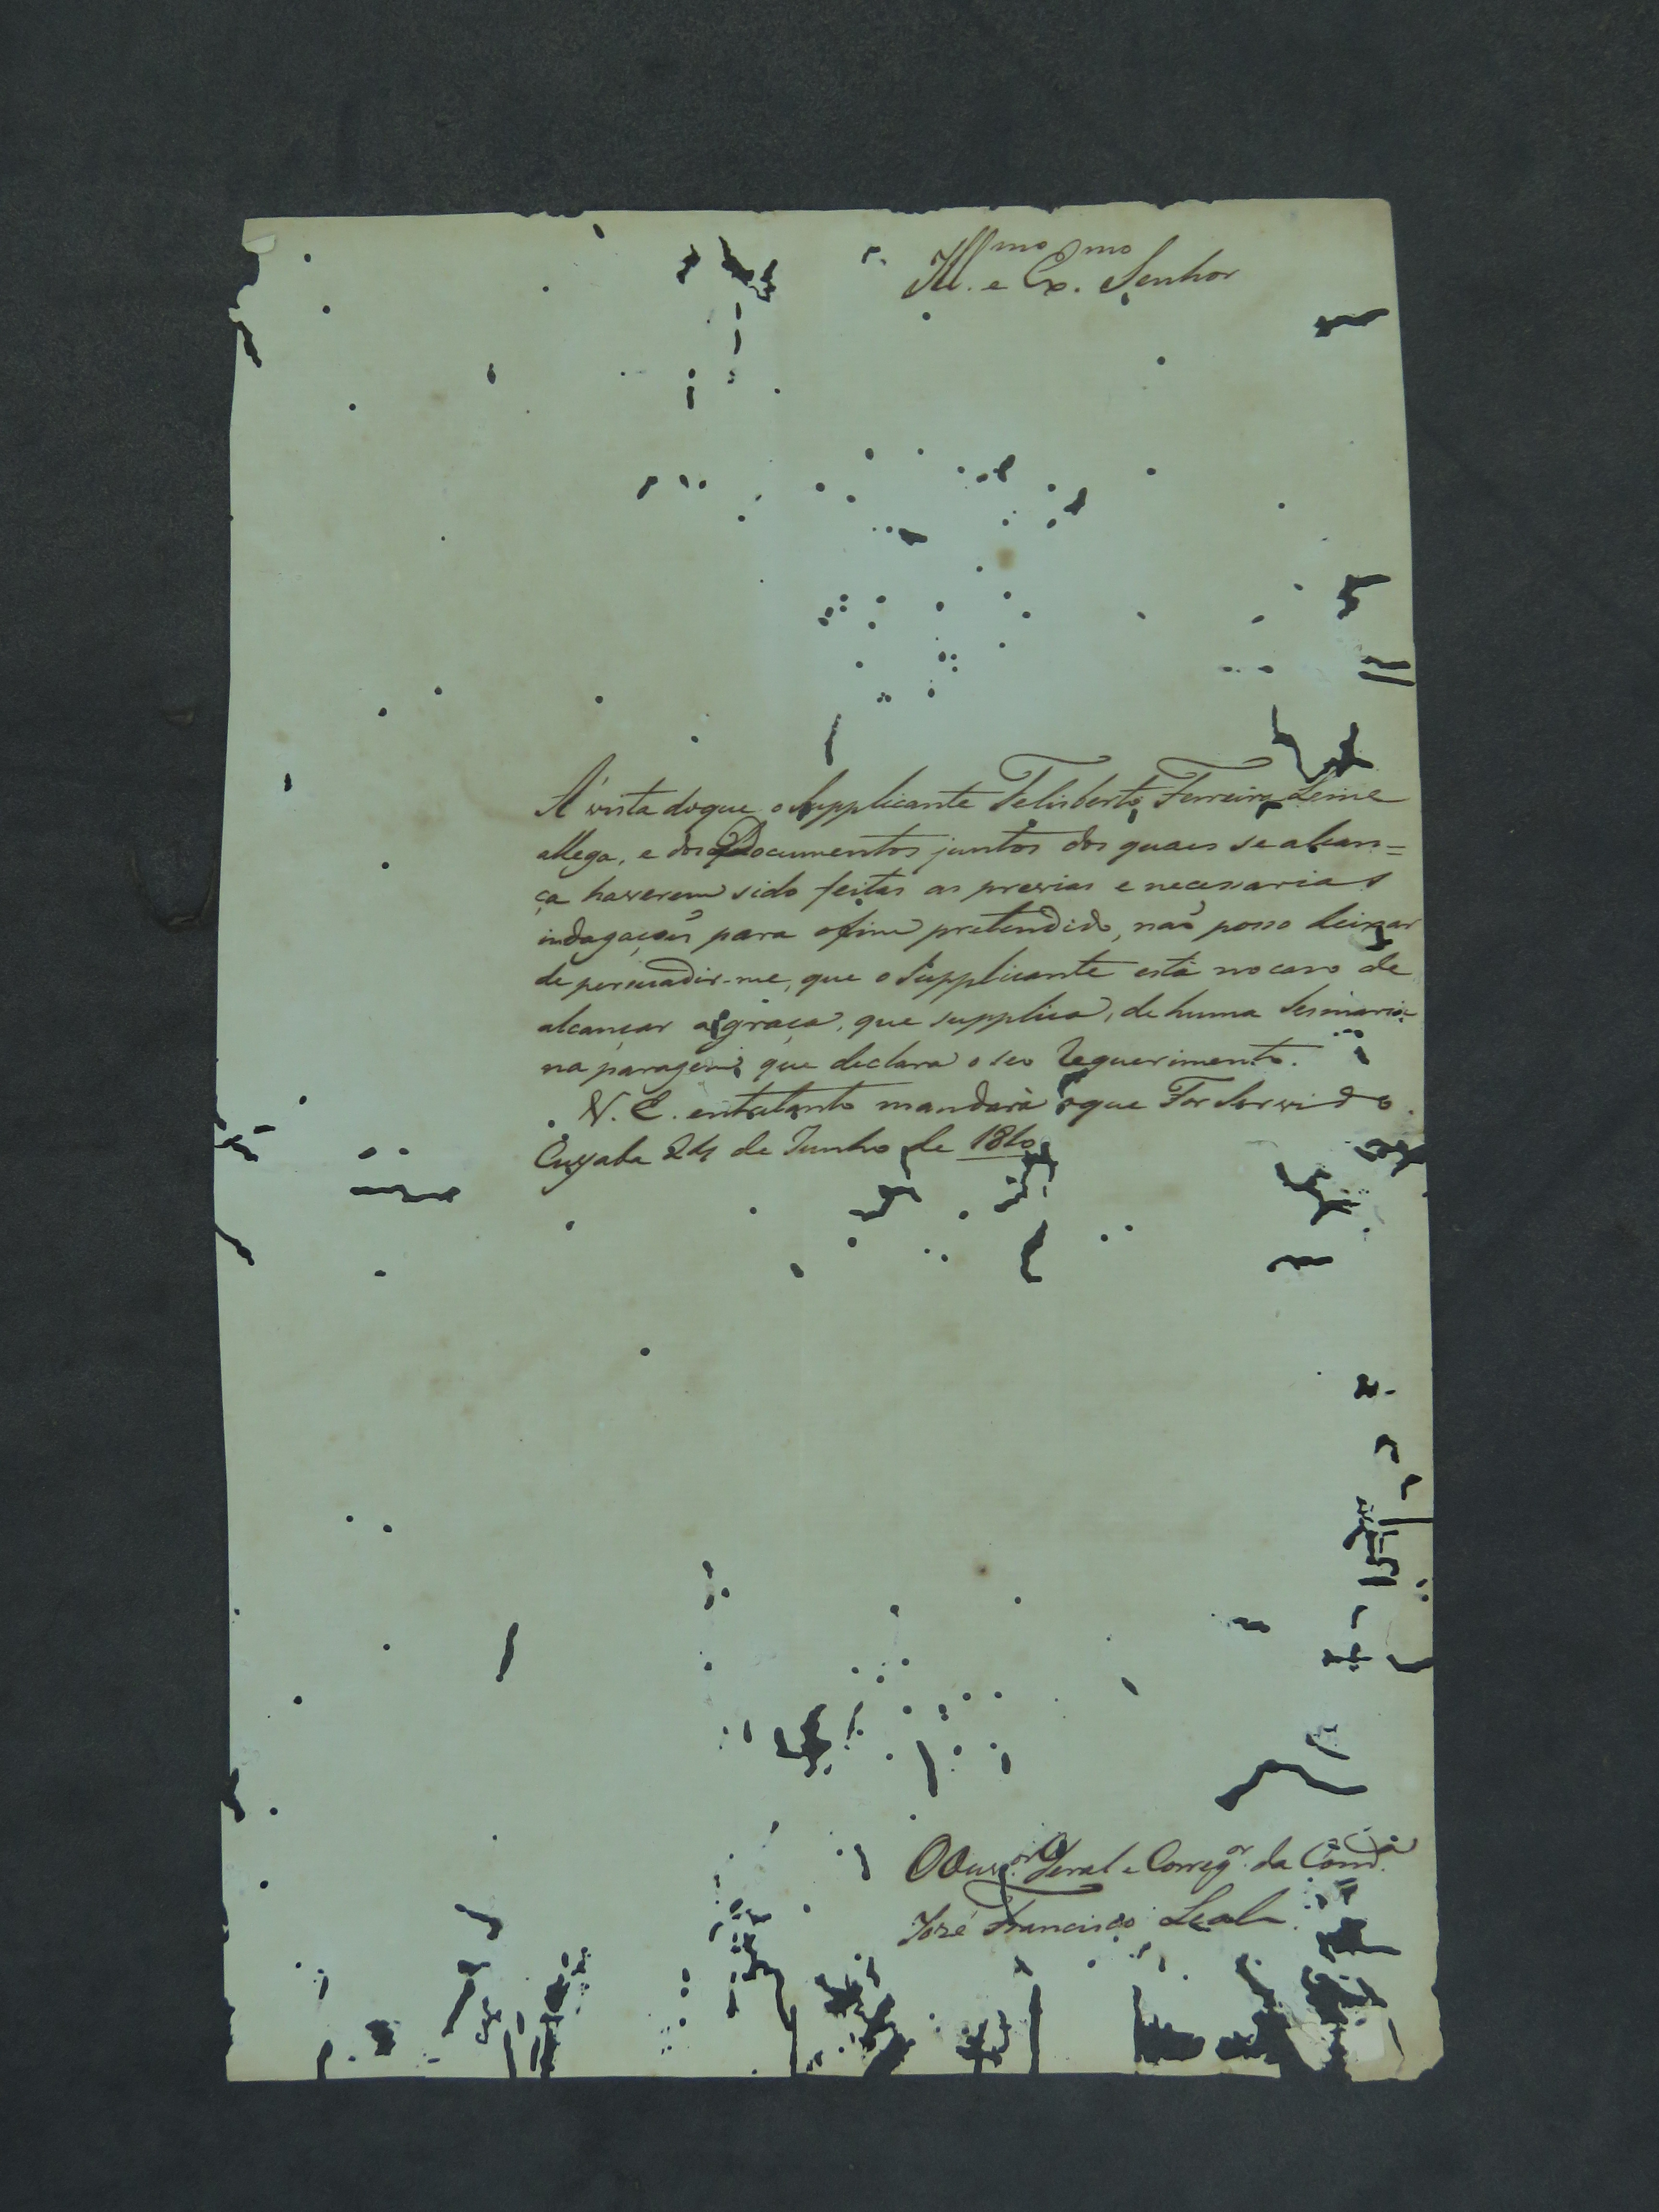 Ill.mo e Ex.mo Senhor
A' vista doque o Supplicante Felisberto Ferreira Leme
allega, e dos Documentos juntos dos quaes se alcan=
ça haverem sido feitas as previas e necessarias
indagaçoẽs para ofim pretendido, naõ posso deixar
de persuadir-me, que o Supplicante está nocaso de
alcançar a graça, que supplica, de huma Sesmaria
na paragem que declara o seo requerimento.
V. E. entretanto mandarà oque For Servido.
Cuyaba 24 de Junho de
O Ouv.or Geral e Correg.or da Com.ca
José Francisco Leal